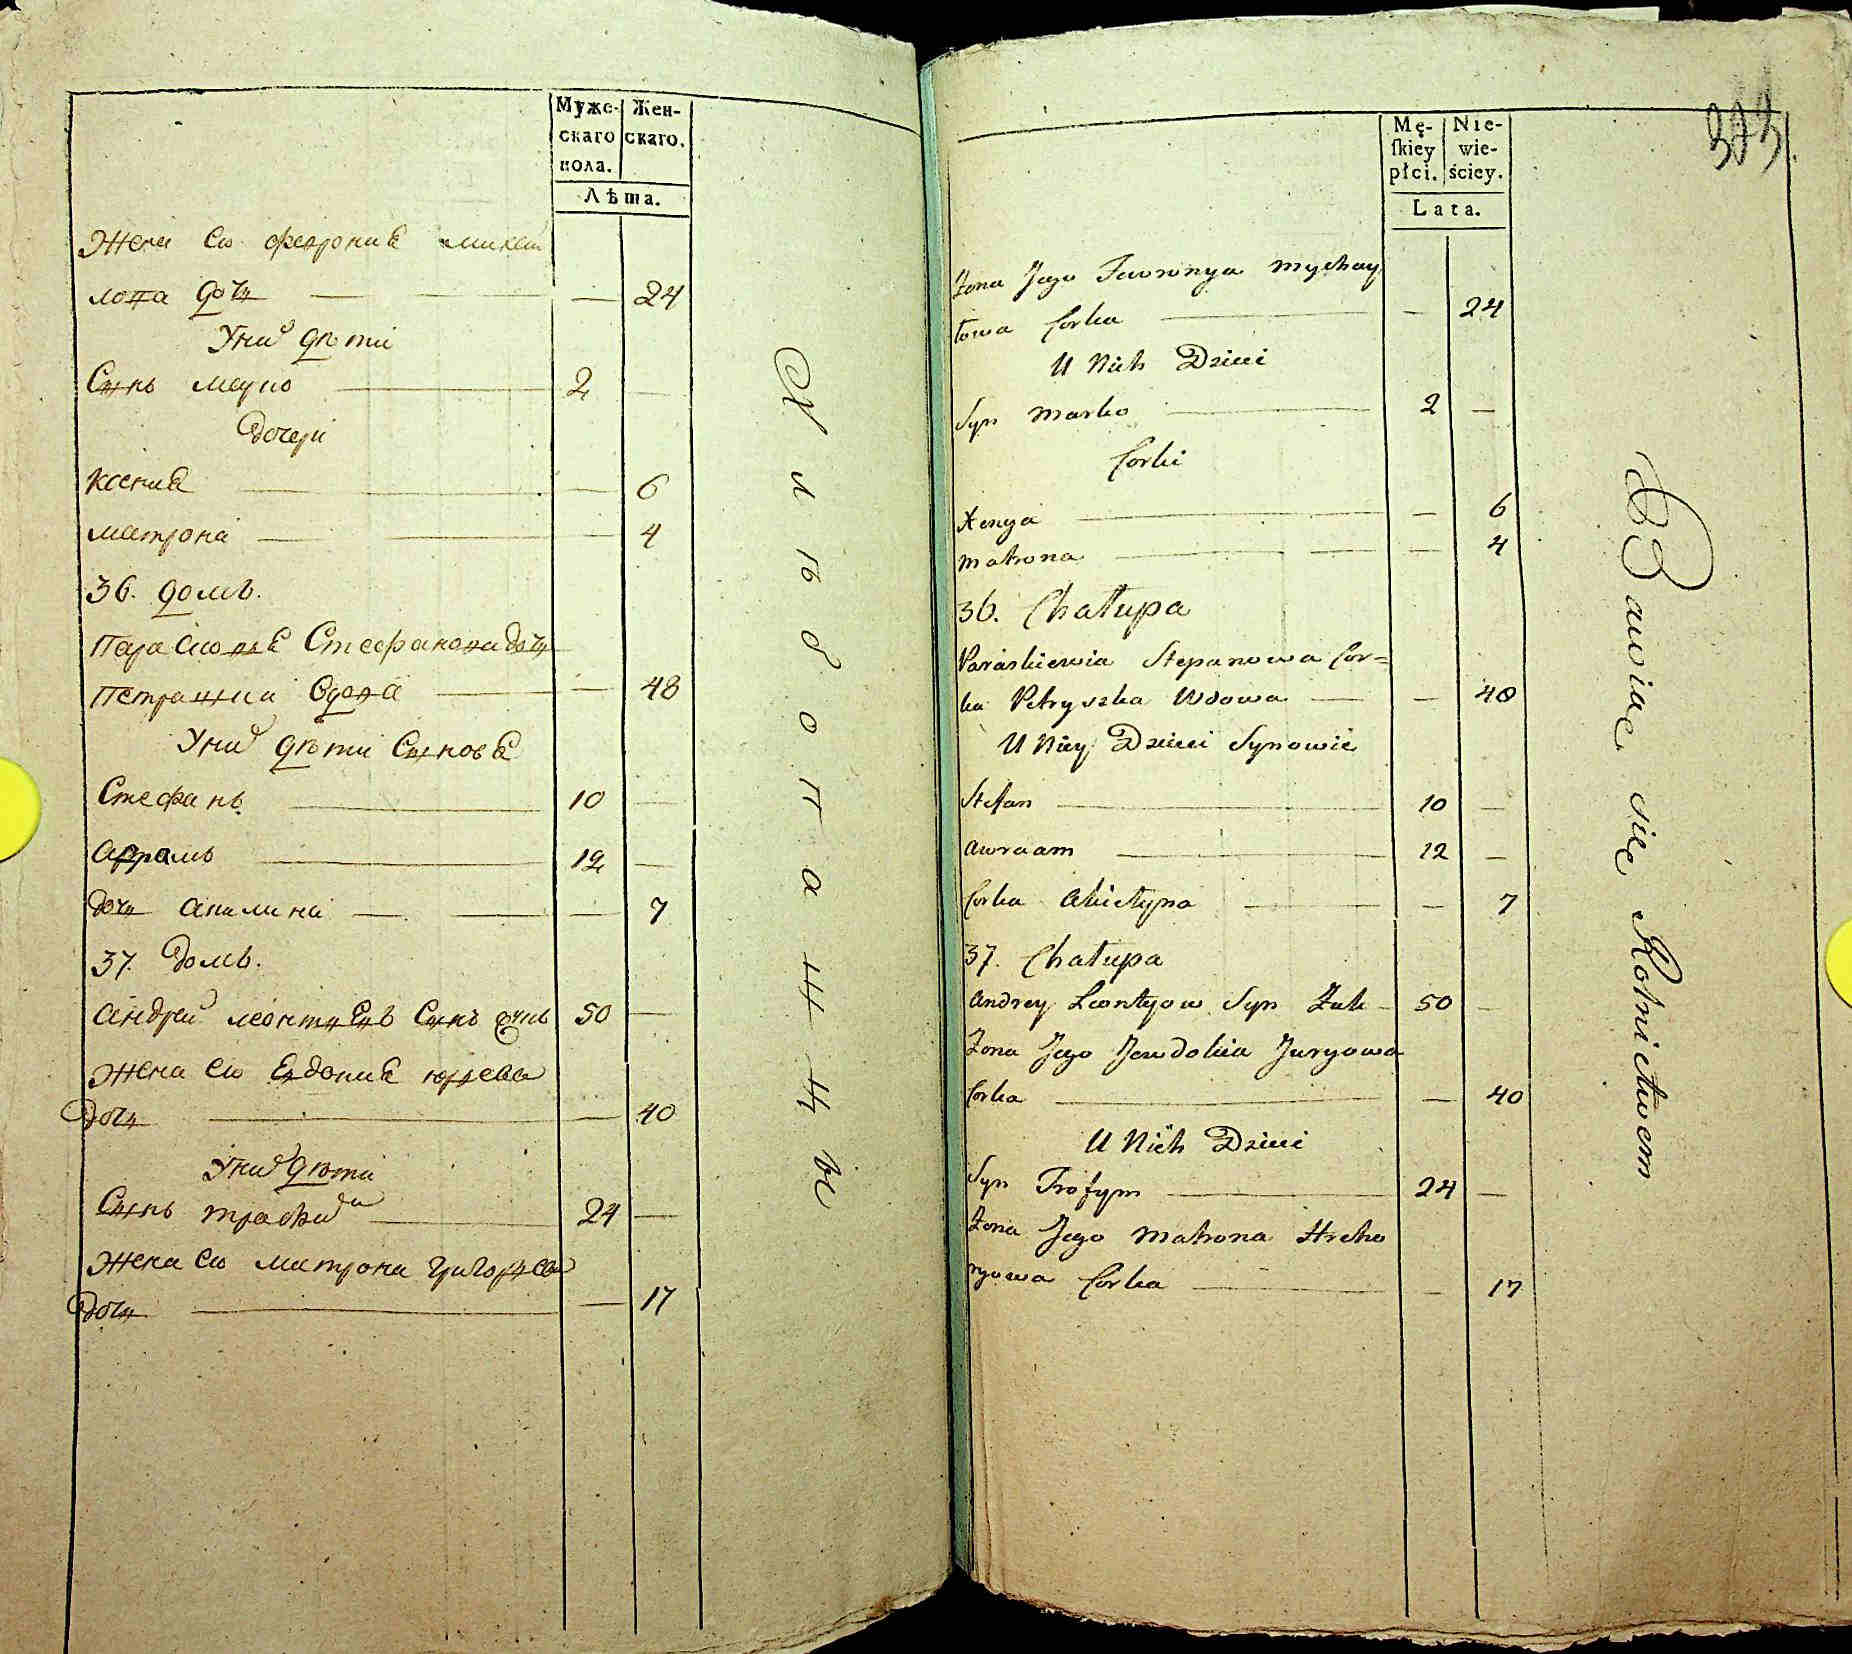 Муже-
скаго
пола.
Жен-
скаго.
Лѣта.
Жена Ею феврония михай
лова дочь — 24
Уних дѣти
Сынъ марко — 2 —
дочери
Ксения — 6
матрона — 4
36. домъ.
Парасковья Стефанова дочь
Петрашка вдова — 48
Уних дѣти Сыновья
Стефанъ 10 —
Аврамъ 12 —
дочь Акилина — 7
37. домъ.
Андрей леонтьевъ Сынъ 50 —
Жена Ею Евдокия юрьева
дочь — 40
Уних дѣти
Сынъ трофим 24 —
Жена Ею матрона григорьева
дочь — 17
Хлѣбопашцы
303
Mę-
ſkiey
płci.
Nie-
wie-
ściey.
Lata.
Żona Jego Fewronya Mychay
łowa Corka — 24
U Nich Dzieci
Syn Marko 2 —
Corki
Xenya — 6
Matrona — 4
36. Chałupa
Paraskiewia Stepanowa Cor=
ka Petryszka Wdowa — 48
U Niey Dzieci Synowie
Stefan 10 —
Awraam 12 —
Corka Akietyna — 7
37. Chałupa
Andrey Leontyow Syn Żuk 50 —
Żona Jego Jewdokia Juryowa
Corka — 40
U Nich Dzieci
Syn Trofym 24 —
Żona Jego Matrona Hreho
ryowa Corka — 17
Bawiąc się Rolnictwem